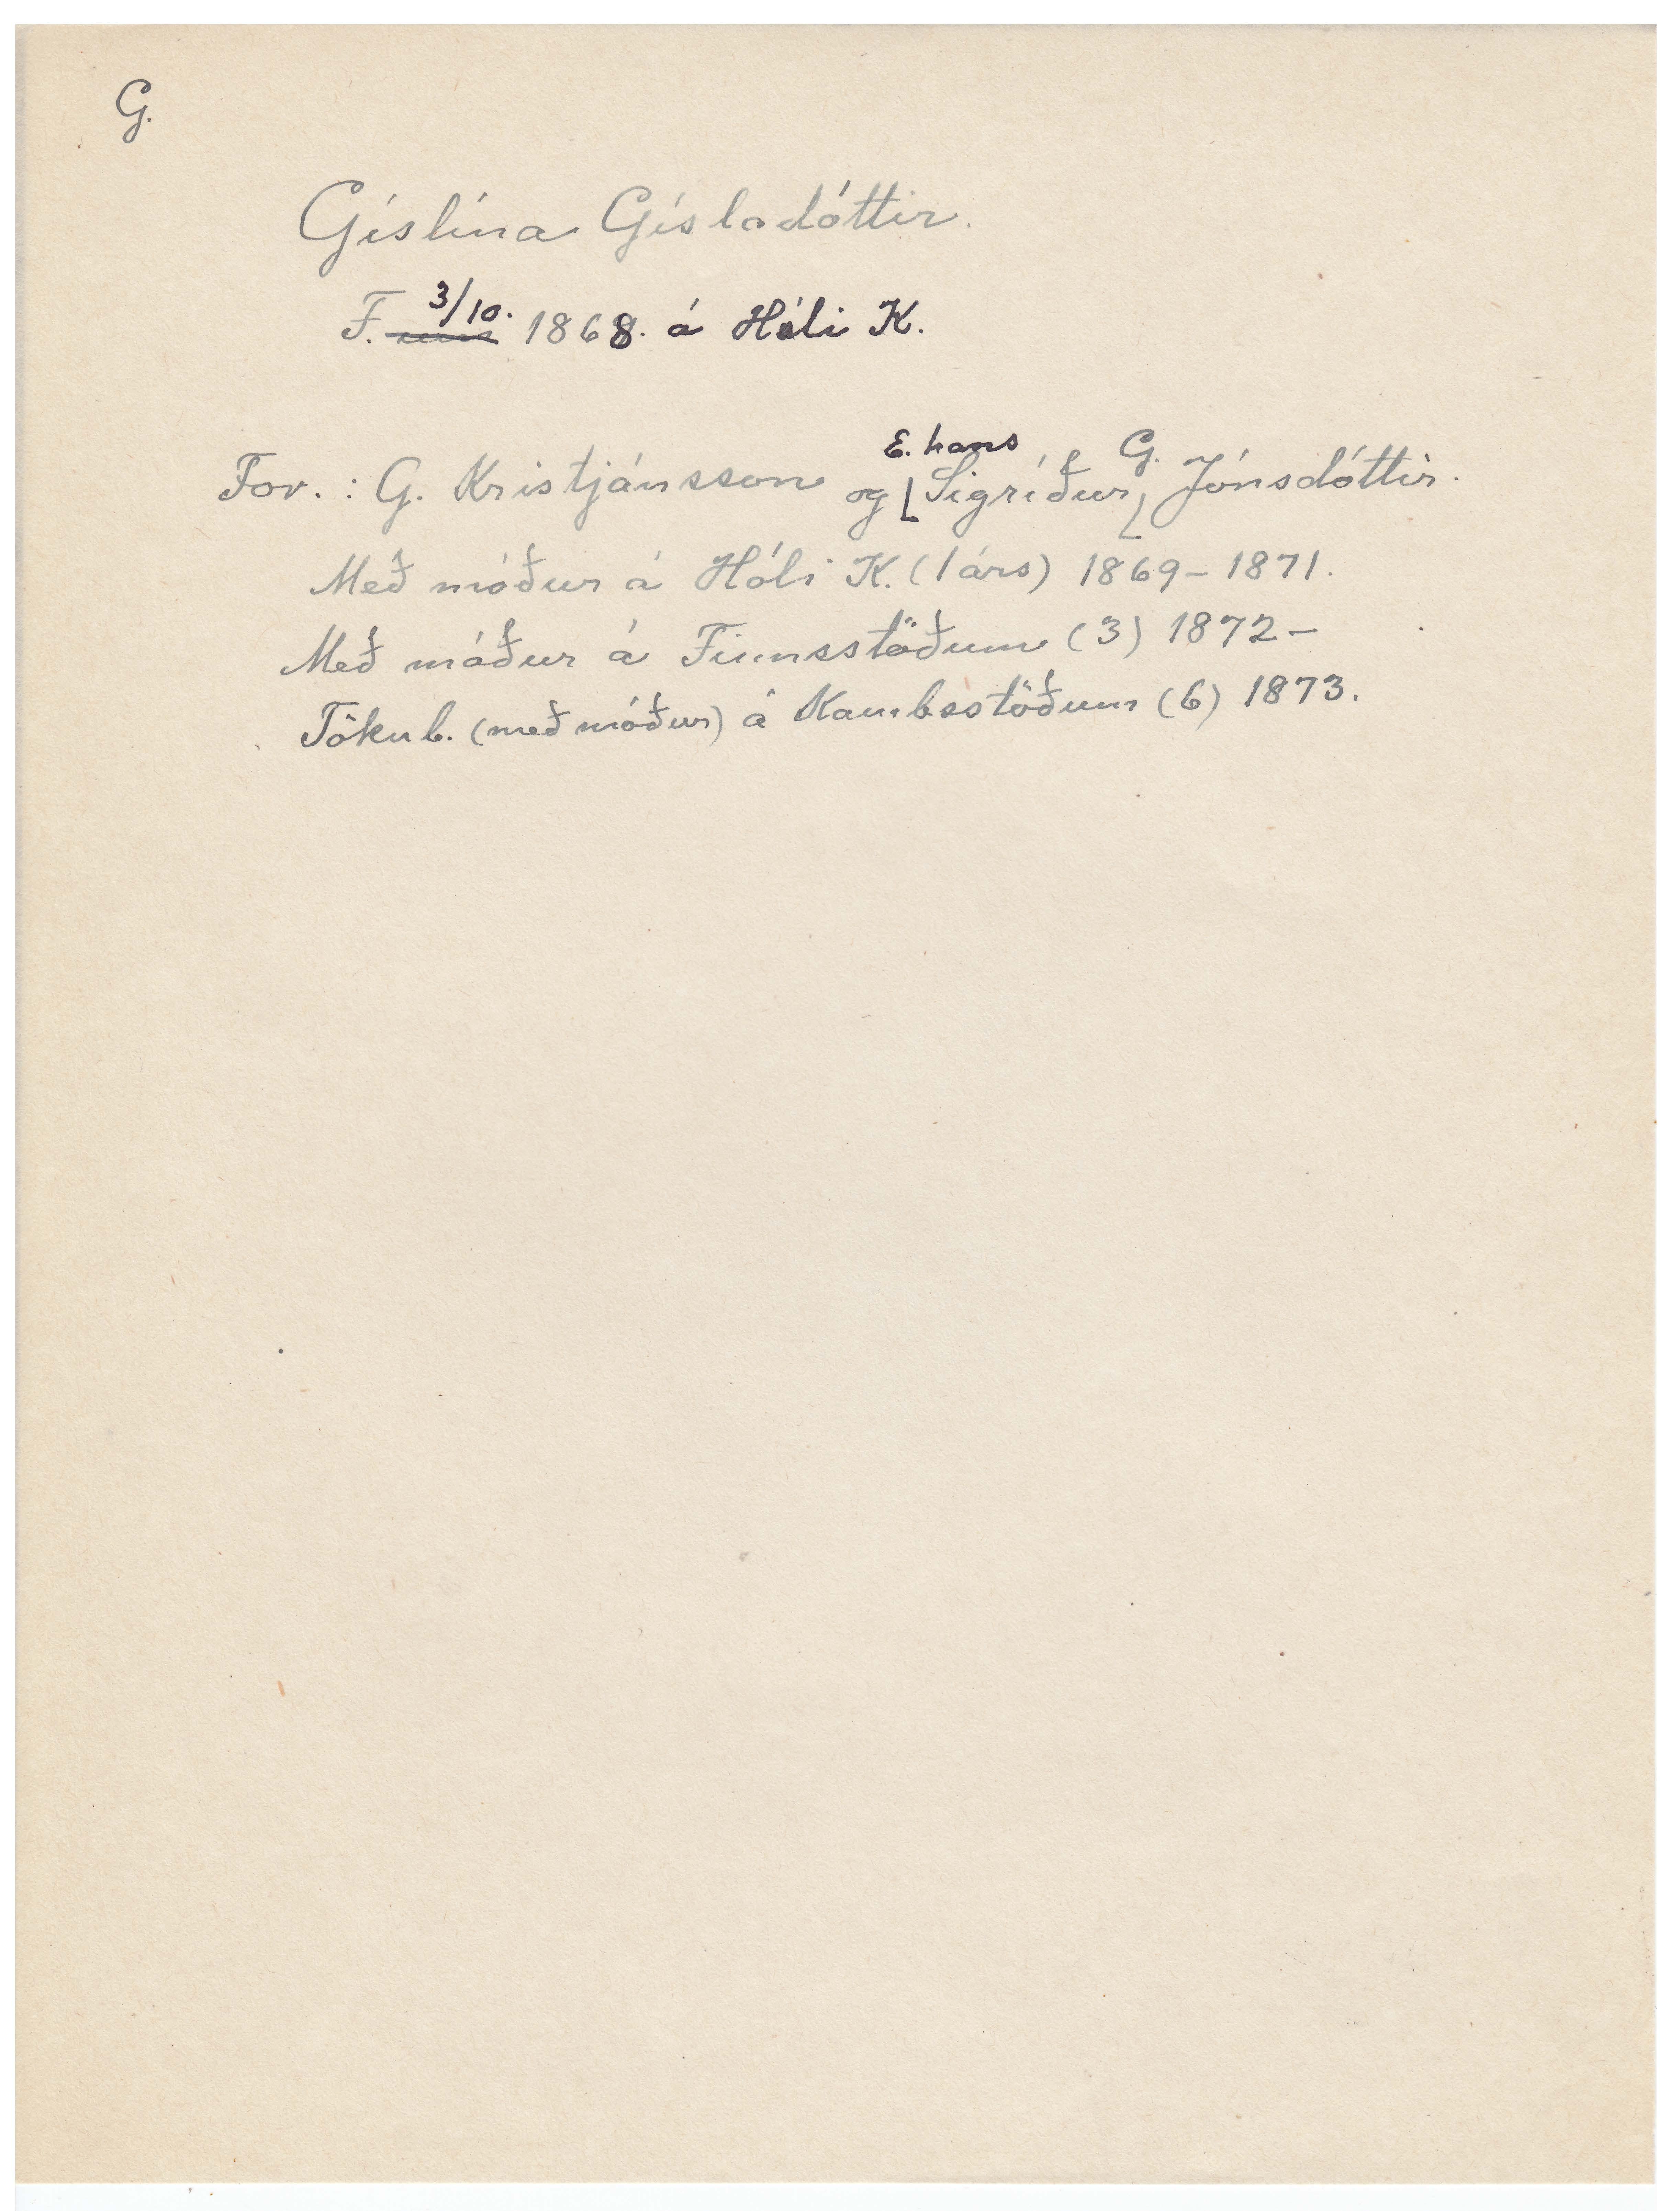 G.
Gíslína Gísladóttir.
F. 3/10. 1868. á Hóli K.
For.: G. Kristjánsson og E. hans Sigríður G. Jónsdóttir.
Með móður á Hóli K. (1 árs) 1869-1871.
Með móður á Finnsstöðum (3) 1872-
Tökub. (með móður) á Kambsstöðum (6) 1873.